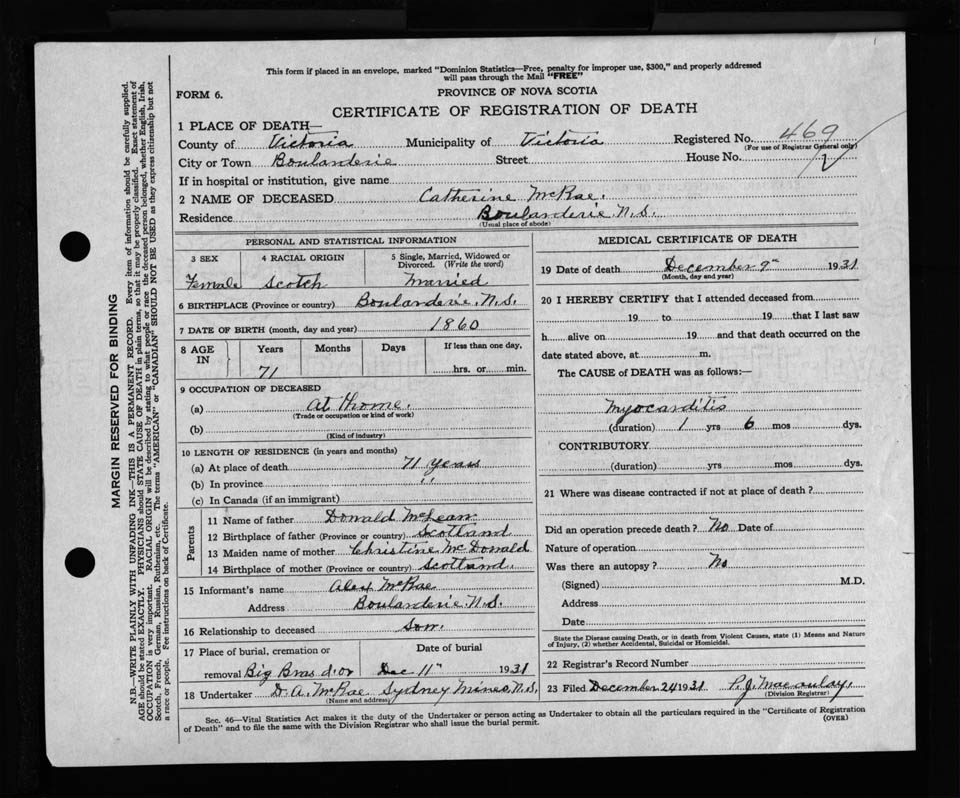 This form if placed in an envelope, marked "Dominion Statistics—Free, penalty for improper use, $300," and properly addressed
will pass through the Mail "FREE"
FORM 6.
PROVINCE OF NOVA SCOTIA
CERTIFICATE OF REGISTRATION OF DEATH
1 PLACE OF DEATH—
County of Victoria Municipality of Victoria Registered No. 469
(For use of Registrar General only)
City or Town Boulanderie Street House No.
If in hospital or institution, give name
2 NAME OF DECEASED Catherine McRae.
Residence Boulanderie N.S.
(Usual place of abode)
PERSONAL AND STATISTICAL INFORMATION
3 SEX 4 RACIAL ORIGIN 5 Single, Married, Widowed or Divorced. (Write the word)
Female Scotch Married
6 BIRTHPLACE (Province or country) Boulanderie N.S.
7 DATE OF BIRTH (month, day and year) 1860
8 AGE IN Years Months Days If less than one day,
71 hrs. or min.
9 OCCUPATION OF DECEASED
(a) At Home.
(Trade or occupation or kind of work)
(b)
(Kind of industry)
10 LENGTH OF RESIDENCE (in years and months)
(a) At place of death 71 years
(b) In province "
(c) In Canada (if an immigrant)
Parents
11 Name of father Donald McLean
12 Birthplace of father (Province or country) Scotland
13 Maiden name of mother Christine McDonald
14 Birthplace of mother (Province or country) Scotland.
15 Informant's name Alex McRae
Address Boulanderie N.S.
16 Relationship to deceased Son.
17 Place of burial, cremation or Date of burial
removal Big Bras d'or Dec 11" 1931
18 Undertaker D. A. McRae Sydney Mines N.S.
(Name and address)
MEDICAL CERTIFICATE OF DEATH
19 Date of death December 9th 1931
(Month, day and year)
20 I HEREBY CERTIFY that I attended deceased from
19 to 19 that I last saw
h alive on 19 and that death occurred on the
date stated above, at m.
The CAUSE of DEATH was as follows:—
Myocarditis
(duration) 1 yrs 6 mos dys.
CONTRIBUTORY
(duration) yrs mos dys.
21 Where was disease contracted if not at place of death?
Did an operation precede death? No Date of
Nature of operation
Was there an autopsy? No
(Signed) M.D.
Address
Date
State the Disease causing Death, or in death from Violent Causes, state (1) Means and Nature
of Injury, (2) whether Accidental, Suicidal or Homicidal.
22 Registrar's Record Number
23 Filed December 24 1931 P. J. Macaulay.
(Division Registrar)
Sec. 46—Vital Statistics Act makes it the duty of the Undertaker or person acting as Undertaker to obtain all the particulars required in the "Certificate of Registration
of Death" and to file the same with the Division Registrar who shall issue the burial permit.
(OVER)
MARGIN RESERVED FOR BINDING
N.B.—WRITE PLAINLY WITH UNFADING INK—THIS IS A PERMANENT RECORD. Every item of information should be carefully supplied.
AGE should be stated EXACTLY. PHYSICIANS should STATE CAUSE OF DEATH in plain terms, so that it may be properly classified. Exact statement of
OCCUPATION is very important. RACIAL ORIGIN will be described by stating to what people or race the deceased person belonged, whether English, Irish,
Scotch, French, German, Russian, Ruthenian, etc. The terms "AMERICAN" or "CANADIAN" SHOULD NOT BE USED as they express citizenship but not
a race or people. Fee instructions on back of Certificate.